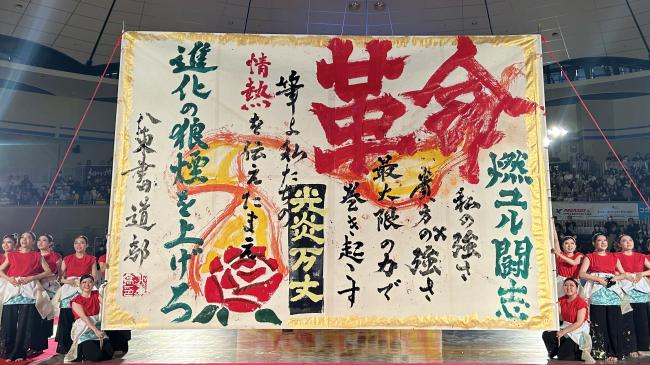 革命
燃ユル闘志
私の強さ
×
貴方の強さ
最大限の力で
巻き起こす
光炎万丈
筆よ私たちの
情熱を伝えたまえ
進化の狼煙を上げろ
八東書道部